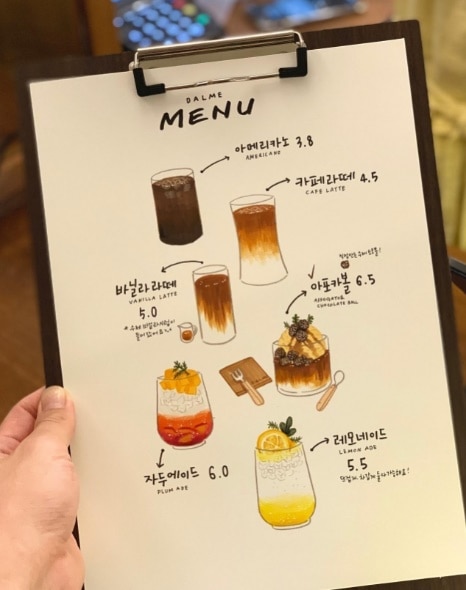 DALME
MENU
아메리카노 3.8
AMERICANO
카페라떼 4.5
CAFE LATTE
바닐라라떼
VANILLA LATTE
5.0
아포카볼 6.5
AFFOGATO &
CHOCOLATE BALL
자두에이드 6.0
PLUM ADE
레모네이드
LEMON ADE
5.5